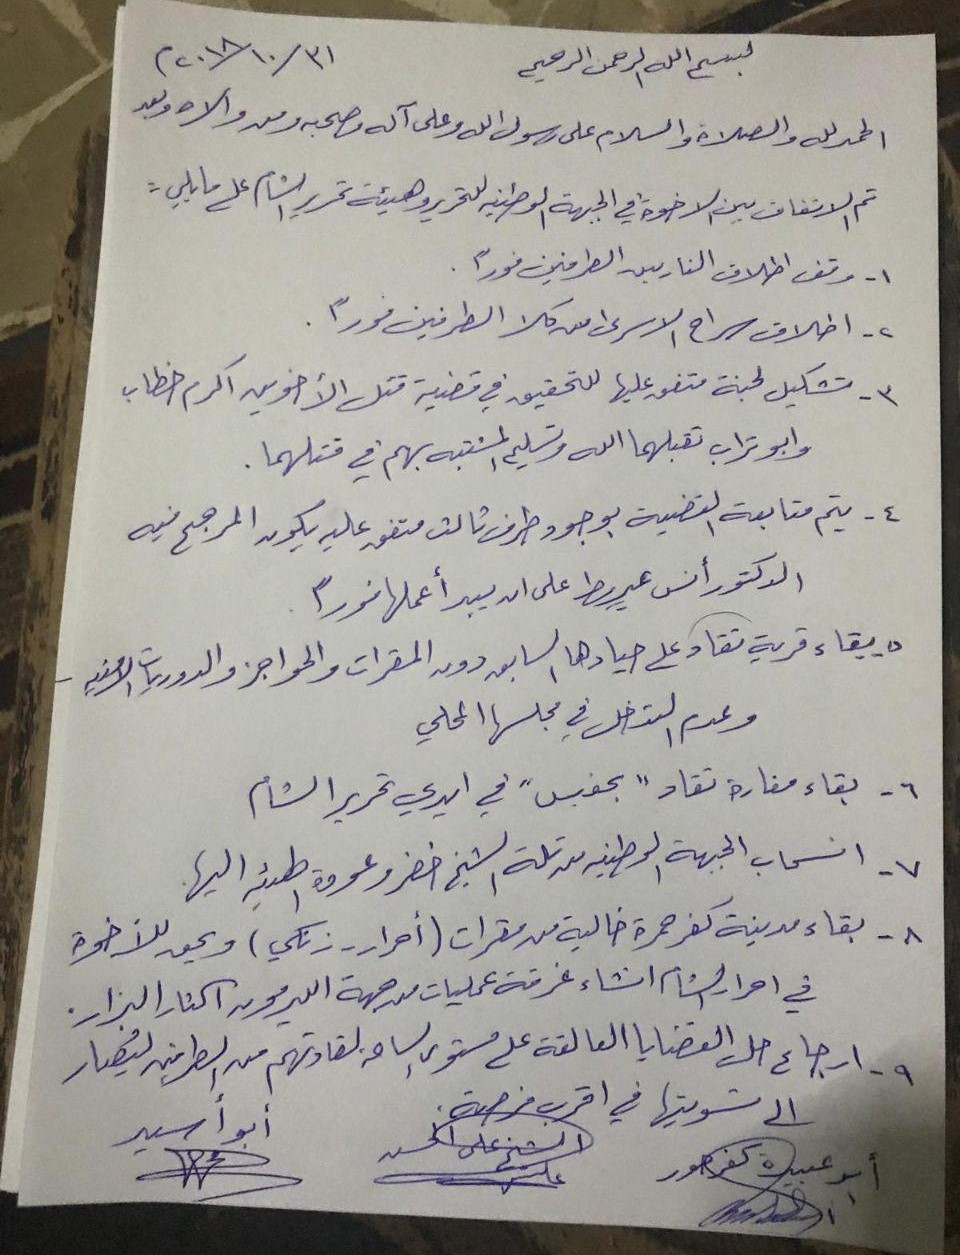 بسم الله الرحمن الرحيم ٣١/١٠/٢٠١٨م
الحمد لله والصلاة والسلام على رسول الله وعلى آله وصحبه ومن والاه وبعد
تم الاتفاق بين الاخوة في الجبهة الوطنية للتحرير وهيئة تحرير الشام على ما يلي :
١- وقف اطلاق النار بين الطرفين فوراً .
٢- اطلاق سراح الاسرى من كلا الطرفين فوراً .
٣- تشكيل لجنة متفق عليها للتحقيق في قضية قتل الأخوين اكرم خطاب
وابو تراب تقبلهما الله وتسليم المشتبه بهم في قتلهما .
٤- يتم متابعة القضية بوجود طرف ثالث متفق عليه يكون المرجح فيه
الدكتور أنس عيروط على ان يبدأ عملها فوراً .
٥- بقاء قرية تقاد على حيادها السابق دون المقرات والحواجز والدوريات الامنية -
وعدم التدخل في مجلسها المحلي
٦- بقاء مغارة تقاد " بجفبس " في ايدي تحرير الشام
٧- انسحاب الجبهة الوطنية من تلة الشيخ خضر وعودة اليها .
٨- بقاء مدينة كفر حمرة خالية من مقرات (أحرار - زنكي) ويحق للأخوة
في احرار الشام انشاء غرفة عمليات من جهة الليرمون البزار .
٩- ارجاع حل القضايا العالقة على مستوى الساحة لقادتهم من الطرفين ليُصار
الى تسويتها في اقرب فرصة .
أبو عبيدة كفر حور الشيخ علي أبو أسيد